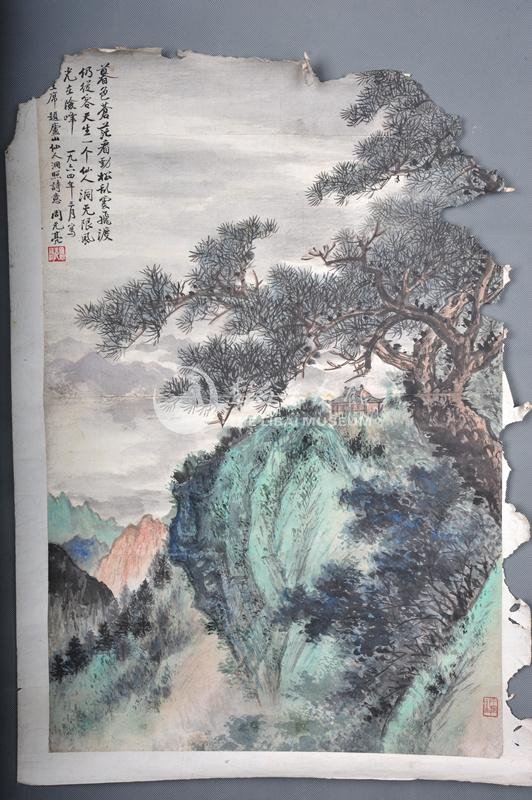 暮色蒼茫看勁松乱雲飛渡
仍從容天生一个仙人洞无限风
光在險峰 一九六四年 月寫
主席題廬山仙人洞照詩意 周元亮
LIBAI MUSEUM